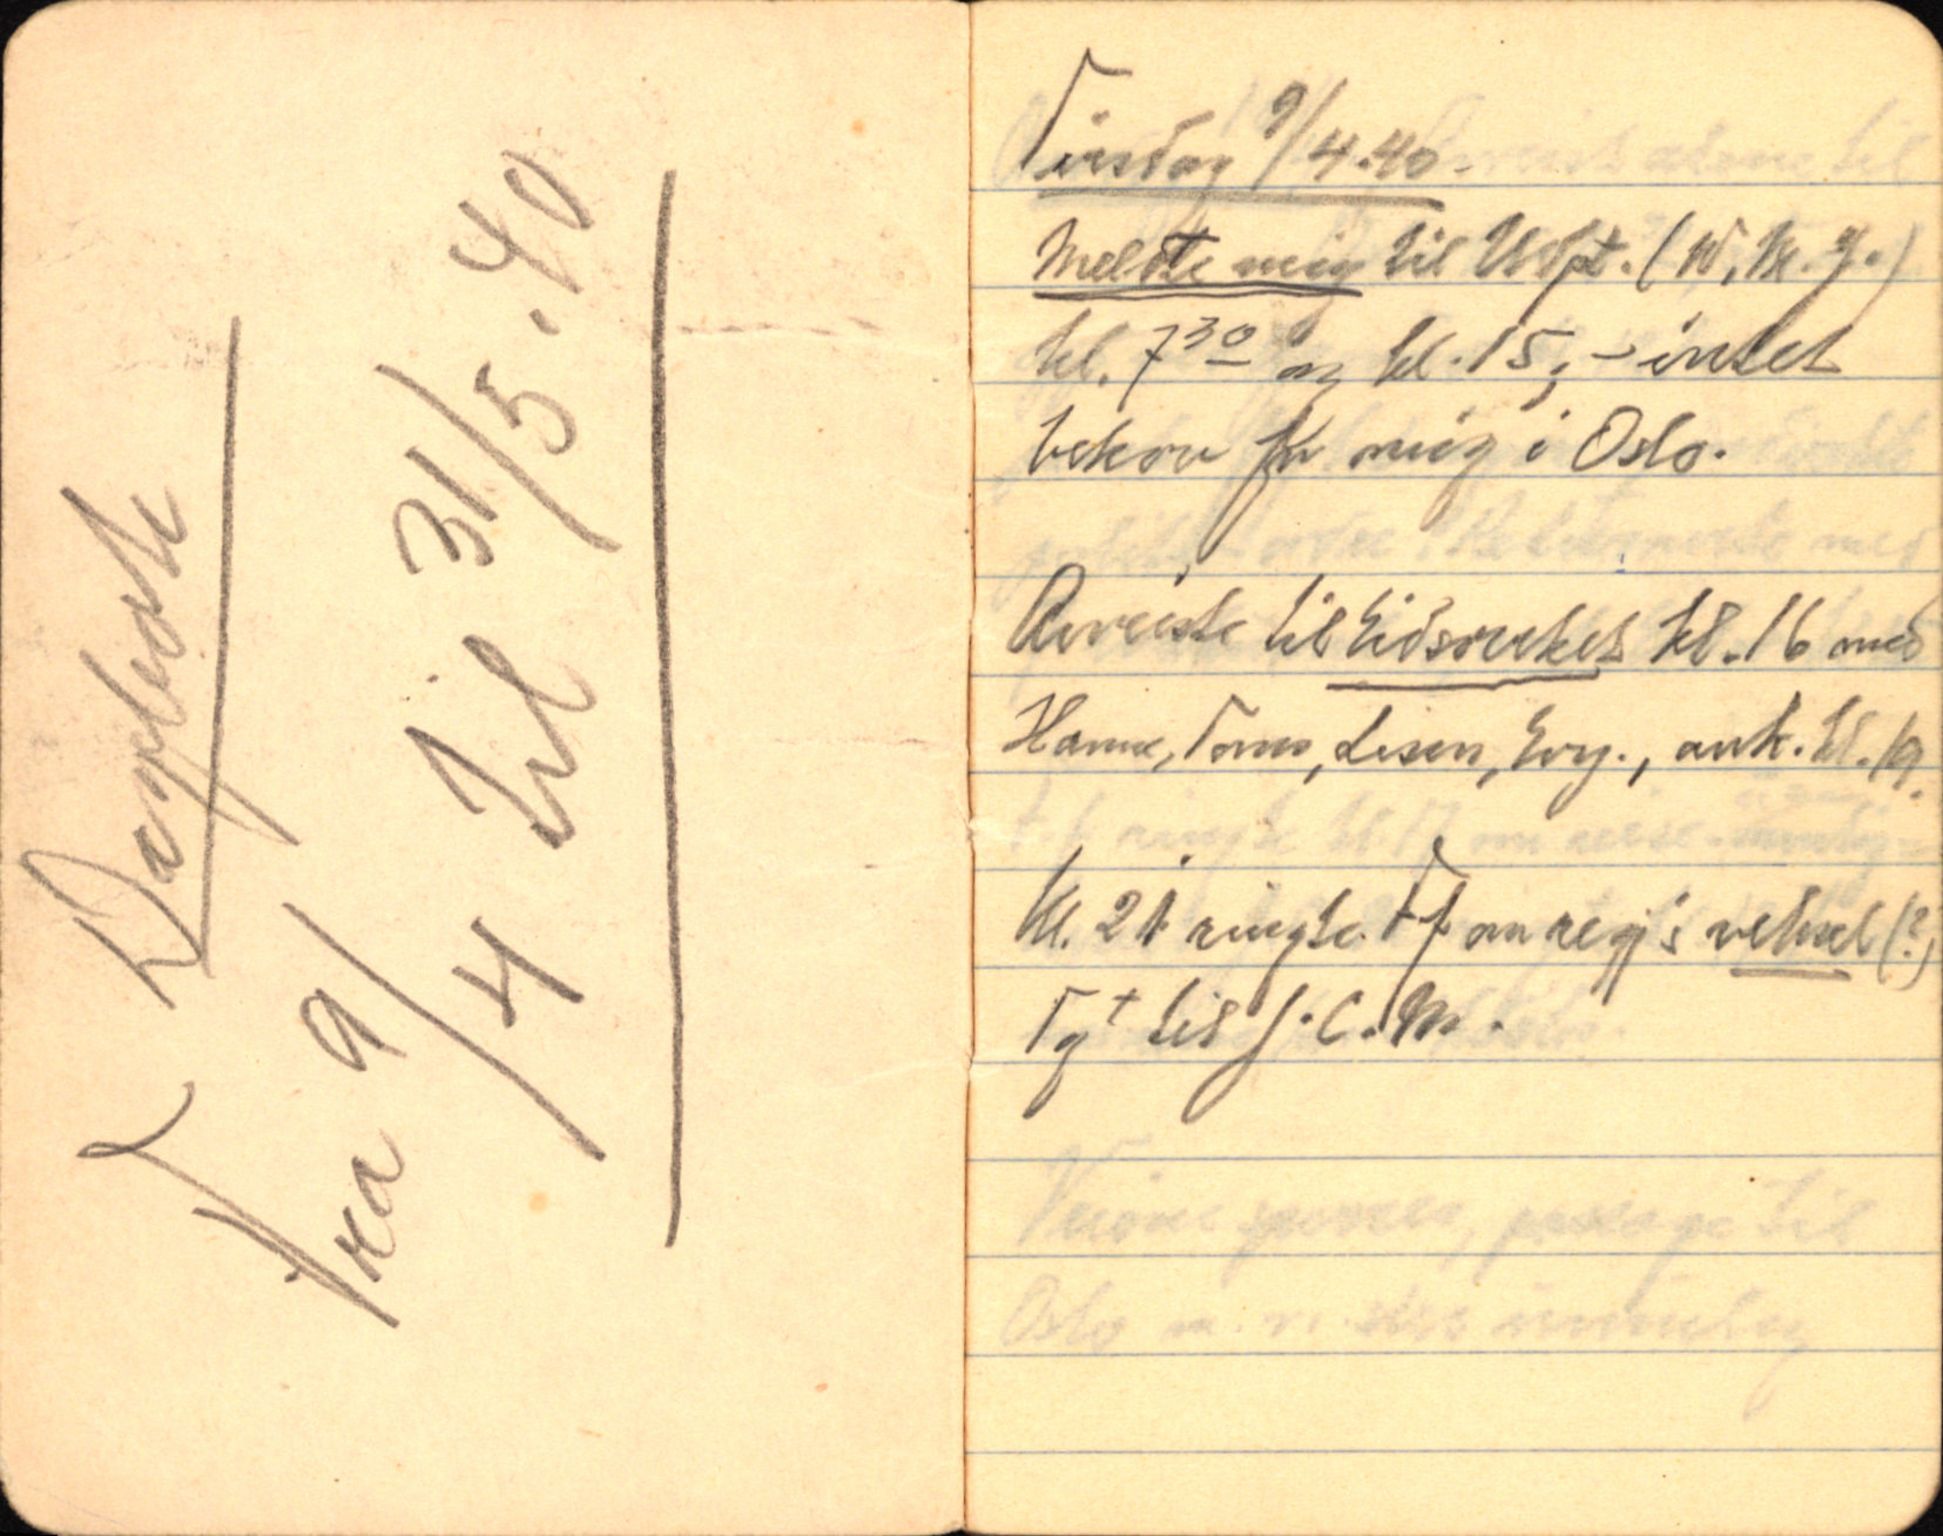 Dagbok
Fra 9/4 til 31/5.40
Tirsdag 9/4.40.
Meldte mig til Udpt. (W, M. g.)
kl. 7³⁰ og kl. 15, - intet
behov for mig i Oslo.
Avreiste til Eidsverket kl. 16 med
Hanne, Tomo, Lisen, Evy., ank. kl. 19.
Kl. 21 ringte Tf om regj's (?)
Tg⁺ til J.C.M.